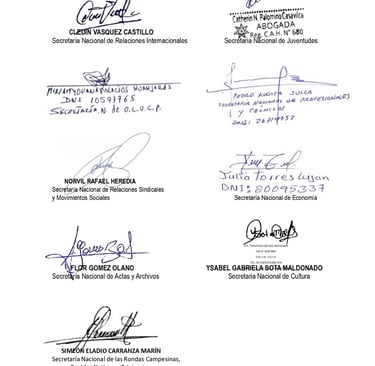 CLEDIN VASQUEZ CASTILLO
Secretaria Nacional de Relaciones Internacionales
Catherin N. Palomino Casavilca
ABOGADA
Reg. C.A.H. N° 680
Secretaria Nacional de Juventudes
PALACIOS HUAYHUAS
DNI 10597765
SECRETARIA N. DE O.L.U.C.P.
PEDRO ACOSTA JULCA
SECRETARIA NACIONAL DE PROFESIONALES
Y TÉCNICOS
NORVIL RAFAEL HEREDIA
Secretaria Nacional de Relaciones Sindicales
y Movimientos Sociales
Julio Torres Lujan
DNI: 80095337
Secretaria Nacional de Economía
FLOR GOMEZ OLANO
Secretaria Nacional de Actas y Archivos
YSABEL GABRIELA SOTA MALDONADO
Secretaria Nacional de Cultura
SIMEÓN ELADIO CARRANZA MARÍN
Secretaría Nacional de las Rondas Campesinas,